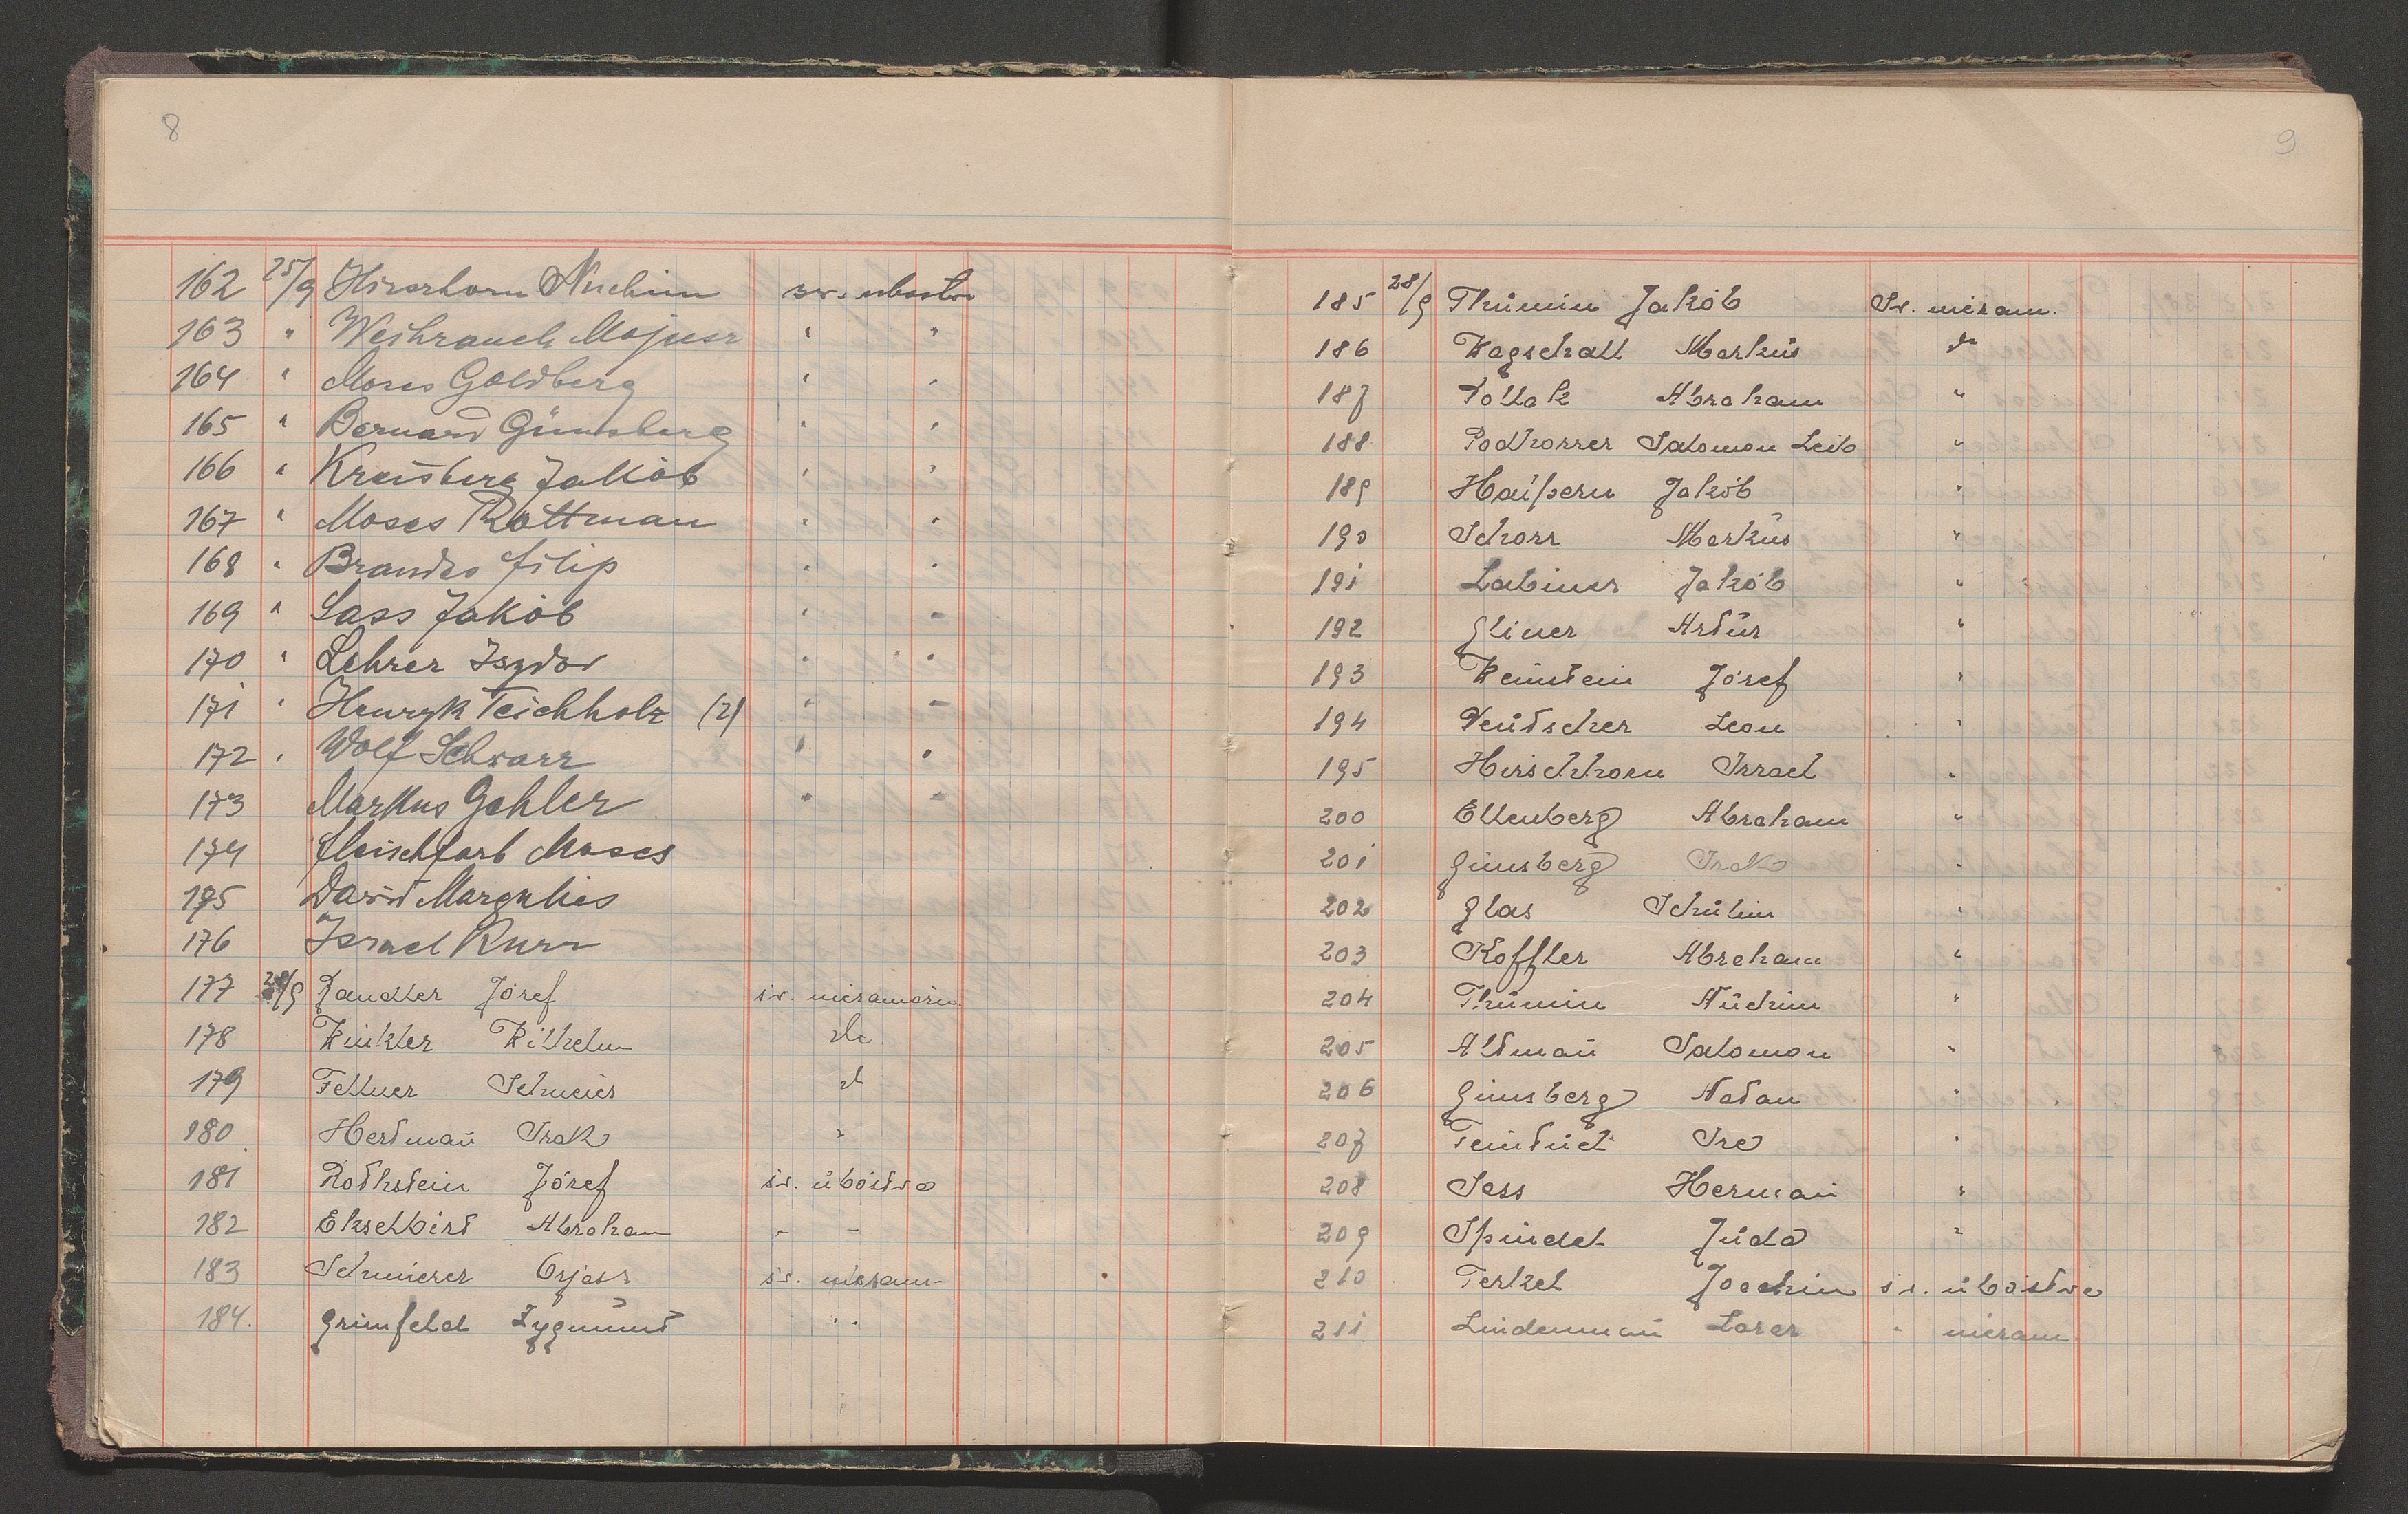 8
162 25/9 Hirschorn Nuchim św. ubóstw
163 " Weihrauch Mojżesz " "
164 " Moses Goldberg " "
165 " Bernard Günsberg " "
166 " Kreisberg Jakób " "
167 " Moses Rottman " "
168 " Brandes Filip " "
169 " Sass Jakób " "
170 " Lehrer Izydor " "
171 " Henryk Teichholz (2) " "
172 " Wolf Schwarz " "
173 Markus Gehler " "
174 Fleischfarb Moses
175 Dawid Margulies
176 Israel Kurz
177 28/9 Zandler Józef św. niezamożn.
178 Winkler Wilhelm dto
179 Fellner Schmeier dt
180 Hertman Izak "
181 Rothstein Józef św. ubóstwa
182 Ekselbirt Abraham " "
183 Schmierer św. niezam
184. Grünfeld Zygmunt " "
9
185 28/9 Thumin Jakób Św. niezam.
186 Wagschall Markus dt
187 Pollak Abraham "
188 Podhorzer Salomon Leib "
189 Halpern Jakób "
190 Schorr Markus "
191 Labiner Jakób "
192 Gliner Artur "
193 Weinstein Józef "
194 Deutscher Leon "
195 Hirschhorn Izrael "
200 Ellenberg Abraham "
201 Ginsberg Izak "
202 Glas Schulim "
203 Koffler Abraham "
204 Thumin Nuchim "
205 Altman Salomon "
206 Ginsberg Natan "
207 Feintuch "
208 Sass Herman "
209 Spindel Juda "
210 Terkel Joachim św. ubóstwa
211 Lindenman Lazar " niezam